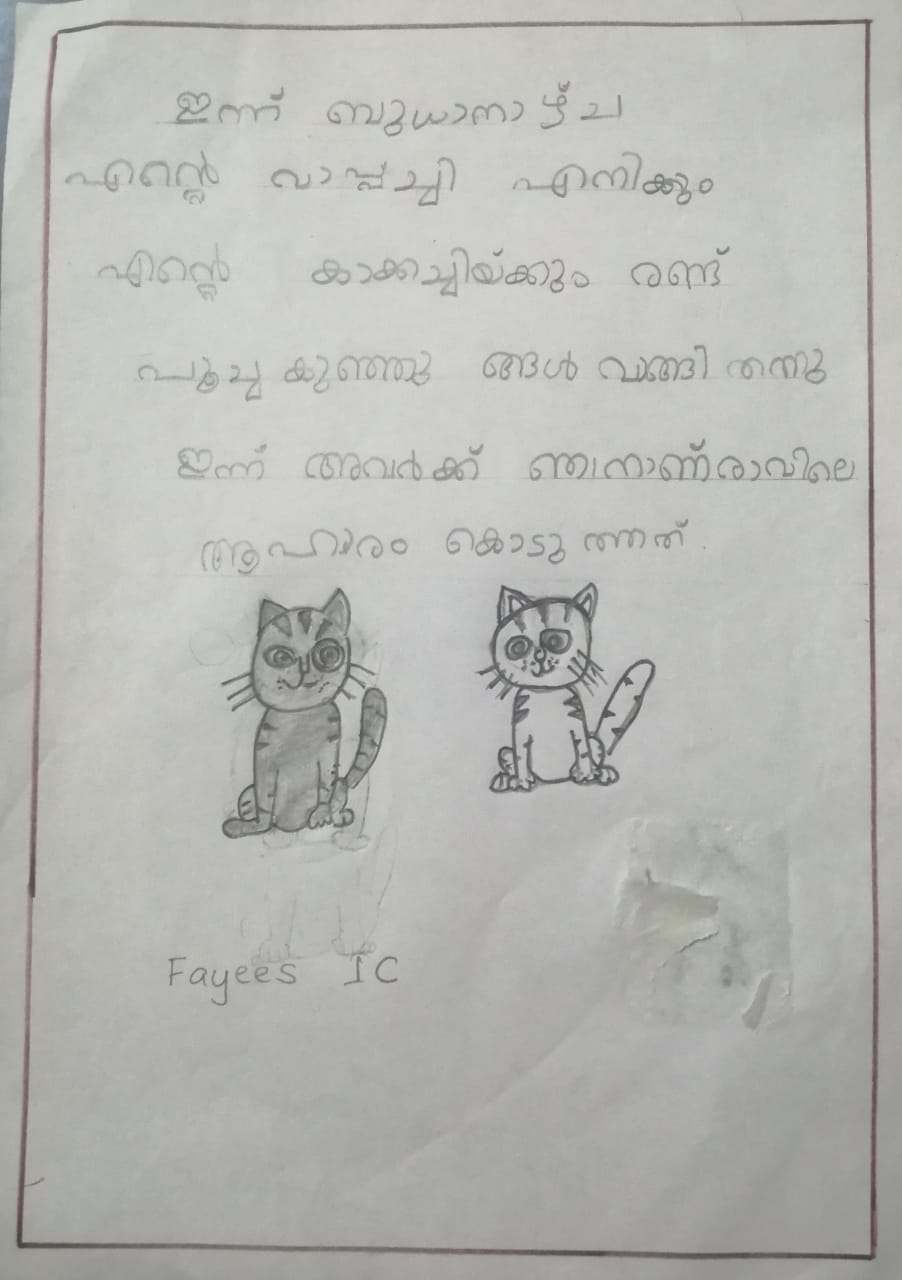 ഇന്ന് ബുധാനാഴ്ച
എന്റെ വാപ്പച്ചി എനിക്കും
എന്റെ കാക്കച്ചിയ്ക്കും രണ്ട്
പൂച്ച കുഞ്ഞു ങ്ങൾ വാങ്ങി തന്നു
ഇന്ന് അവർക്ക് ഞാനാണ് രാവിലെ
ആഹാരം കൊടു ത്തത്.
Fayees 1C